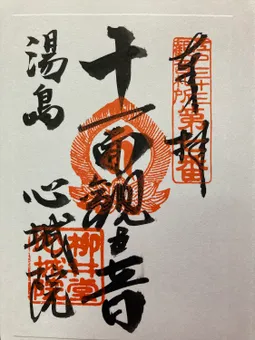 奉拝
十一面観世音
湯島 心城院
柳井堂